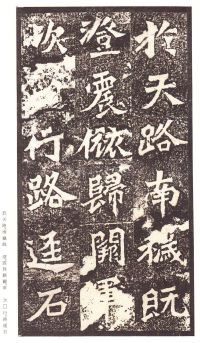 於天路南穢既
澄震旅歸闕軍
次行路逕石